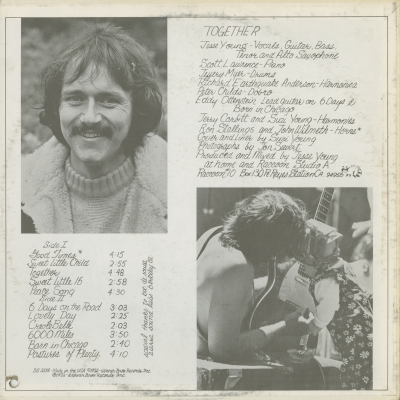 TOGETHER
Jesse Young - Vocals, Guitar, Bass,
Tenor and Alto Saxophone
Scott Lawrence - Piano
Jeffrey Myer - Drums
Richard Earthquake Anderson - Harmonica
Pete Childs - Dobro
Eddy Ottenstein, Lead guitar on 6 Days &
Born in Chicago
Jerry Corbitt and Suzi Young - Harmonies
Ron Stallings and John Wilmeth - Horns*
Cover and Liner by Suzi Young
Photographs by
Produced and Mixed by Jesse Young
at Home and Raccoon Studio A
Raccoon #10 Box 130 Pt. Reyes Station CA.
Side I
Good Times* 4:15
Sweet Little Child 2:55
Together 4:48
Sweet Little 16 2:58
Peace Song 4:30
Side II
6 Days on the Road 3:03
Lovely Day 2:25
Creole Belle 2:03
6000 Miles 3:50
Born in Chicago 2:40
Pastures of Plenty 4:10
special thanks